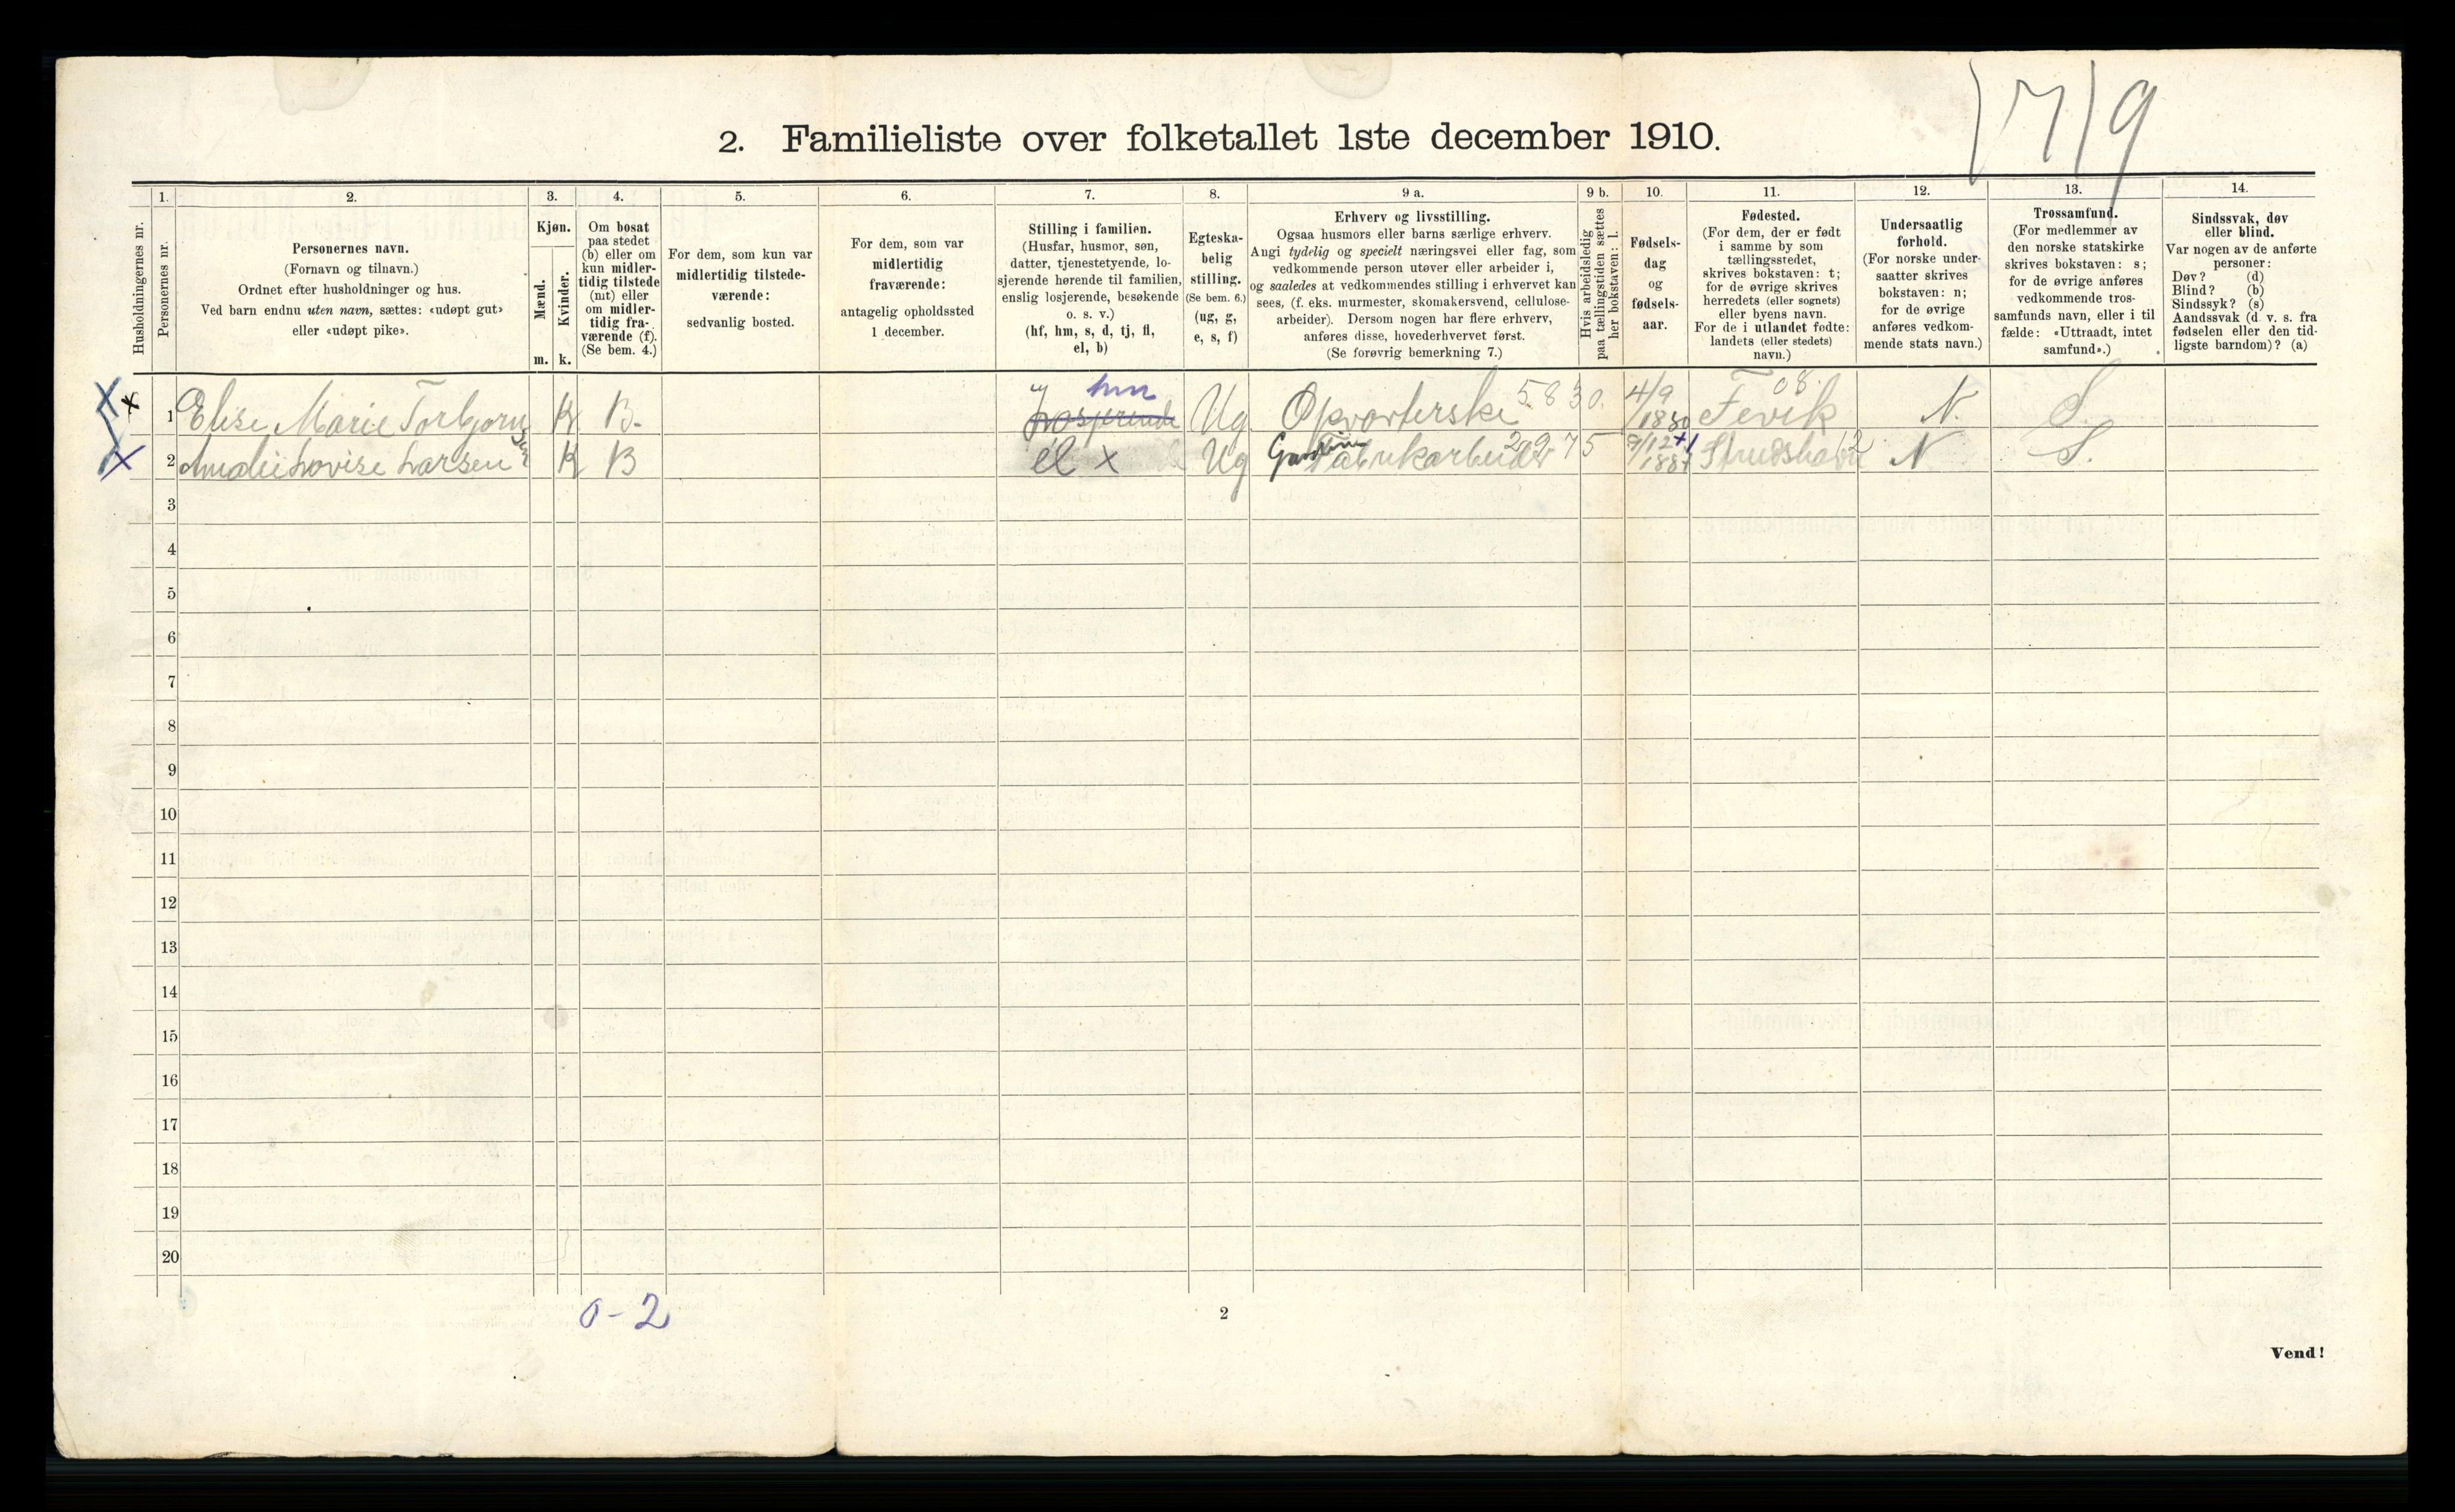 2. Familieliste over folketallet 1ste december 1910.
1. 2. 3. 4. 5. 6. 7. 8. 9 a. 9 b. 10. 11. 12. 13. 14.
Husholdningernes nr.
Personernes nr.
Personernes navn.
(Fornavn og tilnavn.)
Ordnet efter husholdninger og hus.
Ved barn endnu uten navn, sættes: «udøpt gut»
eller «udøpt pike».
Kjøn.
Mænd.
Kvinder.
m. k.
Om bosat
paa stedet
(b) eller om
kun midler-
tidig tilstede
(mt) eller
om midler-
tidig fra-
værende (f).
(Se bem. 4.)
For dem, som kun var
midlertidig tilstede-
værende:
sedvanlig bosted.
For dem, som var
midlertidig
fraværende:
antagelig opholdssted
1 december.
Stilling i familien.
(Husfar, husmor, søn,
datter, tjenestetyende, lo-
sjerende hørende til familien,
enslig losjerende, besøkende
o. s. v.)
(hf, hm, s, d, tj, fl,
el, b)
Egteska-
belig
stilling.
(Se bem. 6.)
(ug, g,
e, s, f)
Erhverv og livsstilling.
Ogsaa husmors eller barns særlige erhverv.
Angi tydelig og specielt næringsvei eller fag, som
vedkommende person utøver eller arbeider i,
og saaledes at vedkommendes stilling i erhvervet kan
sees, (f. eks. murmester, skomakersvend, cellulose-
arbeider). Dersom nogen har flere erhverv,
anføres disse, hovederhvervet først.
(Se forøvrig bemerkning 7.)
Hvis arbeidsledig
paa tællingstiden sættes
her bokstaven: l.
Fødsels-
dag
og
fødsels-
aar.
Fødested.
(For dem, der er født
i samme by som
tællingsstedet,
skrives bokstaven: t;
for de øvrige skrives
herredets (eller sognets)
eller byens navn.
For de i utlandet fødte:
landets (eller stedets)
navn.)
Undersaatlig
forhold.
(For norske under-
saatter skrives
bokstaven: n;
for de øvrige
anføres vedkom-
mende stats navn.)
Trossamfund.
(For medlemmer av
den norske statskirke
skrives bokstaven: s;
for de øvrige anføres
vedkommende tros-
samfunds navn, eller i til
fælde: «Uttraadt, intet
samfund».)
Sindssvak, døv
eller blind.
Var nogen av de anførte
personer:
Døv? (d)
Blind? (b)
Sindssyk? (s)
Aandssvak (d. v. s. fra
fødselen eller den tid-
ligste barndom)? (a)
1 Elise Marie Torbjornsen K B. Losjerende hm Ug Opvarterske 5830. 4/9 1880 Fevik 08. N. S.
2 Amalie Lovise Larsen K B el x Ug Gardin Fabrikarbeider 9/12 N S.
3
4
5
6
7
8
9
10
11
12
13
14
15
16
17
18
19
20
0-2
2
Vend!